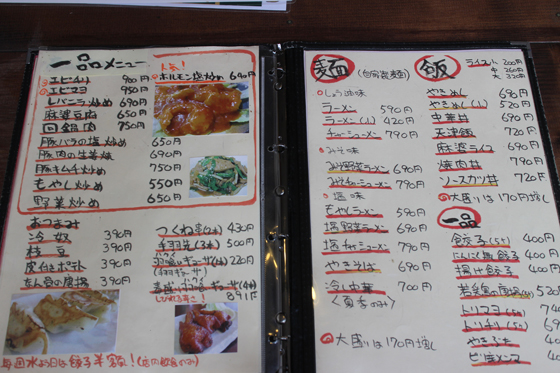 一品メニュー
エビチリ 900円
エビマヨ 950円
レバニラ炒め 690円
麻婆豆腐 650円
回鍋肉 750円
豚バラの塩炒め 650
豚肉の生姜焼 690
豚キムチ炒め 750
もやし炒め 550
野菜炒め 650
人気!
ホルモン塩炒め 690円
おつまみ
冷奴 390円
枝豆 390円
皮付きポテト 390円
つくね串 430円
手羽先 500円
220円
毎週水よう日は餃子半額!(店内飲食のみ)
麺 (自家製麺)
しょう油味
ラーメン 590円
ラーメン(小) 420円
チャーシューメン 790円
みそ味
みそ野菜ラーメン 690円
みそチャーシューメン 790円
塩味
もやしラーメン 590円
塩野菜ラーメン 690円
塩チャーシューメン 790円
やきそば 690円
冷し中華 700円
(夏季のみ)
大盛りは170円増し
飯
ライス 小 200円
中 260円
大 320円
やきめし 690円
やきめし(小) 520円
中華丼 690円
天津飯 720円
麻婆ライス 690円
焼肉丼 790円
ソースカツ丼 720円
大盛りは170円増し
一品
餃子
にんにく無餃子
揚げ餃子